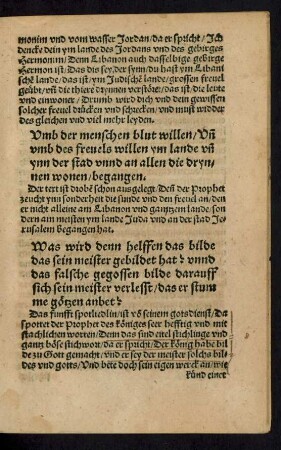 monim vnd vom wasser Jordan/da er spricht/Jch
dencke dein ym lande des Jordans vnd des gebirges
Hermonim/Denn Libanon auch dasselbige gebirge
Hermon ist/Das dis sey der synn/du hast ym Libani
sche lande/das ist/ym Judische lande/grossen freuel
geübt/vn die thiere drynnen verstöret/das ist/die leute
vnd einwoner/Drumb wird dich vnd dein gewissen
solcher freuel drücken vnd schrecken/vnd must widder
des gleichen vnd viel mehr leyden.
Vmb der menschen blut willen/Vn
vmb des freuels willen ym lande vn
ynn der stad vnnd an allen die dryn
nen wonen/begangen.
Der text ist drobē schon ausgelegt/Den der Prophet
zeucht ynn sonderheit die sunde vnd den freuel an/den
er nicht alleine am Libanon vnd gantzem lande/son
dern am meisten ym lande Juda vnd an der stad Je-
rusalem begangen hat.
Was wird denn helffen das bilde
das sein meister gebildet hat? vnnd
das falsche gegossen bilde darauff
sich sein meister verlesst/das er stum
me götzen anbet?
Das funfft spotliedlin/ist vō seinem gotsdienst/Da
spottet der Prophet des königes seer hefftig vnd mit
stachlichen worten/Denn das sind eitel stichlinge vnd
gantz böse stichwort/da er spricht/Der könig habe bil
de zu Gott gemacht/vnd er sey der meister solchs bil-
des vnd gotts/Vnd bete doch sein eigen werck an/wie
kund einer